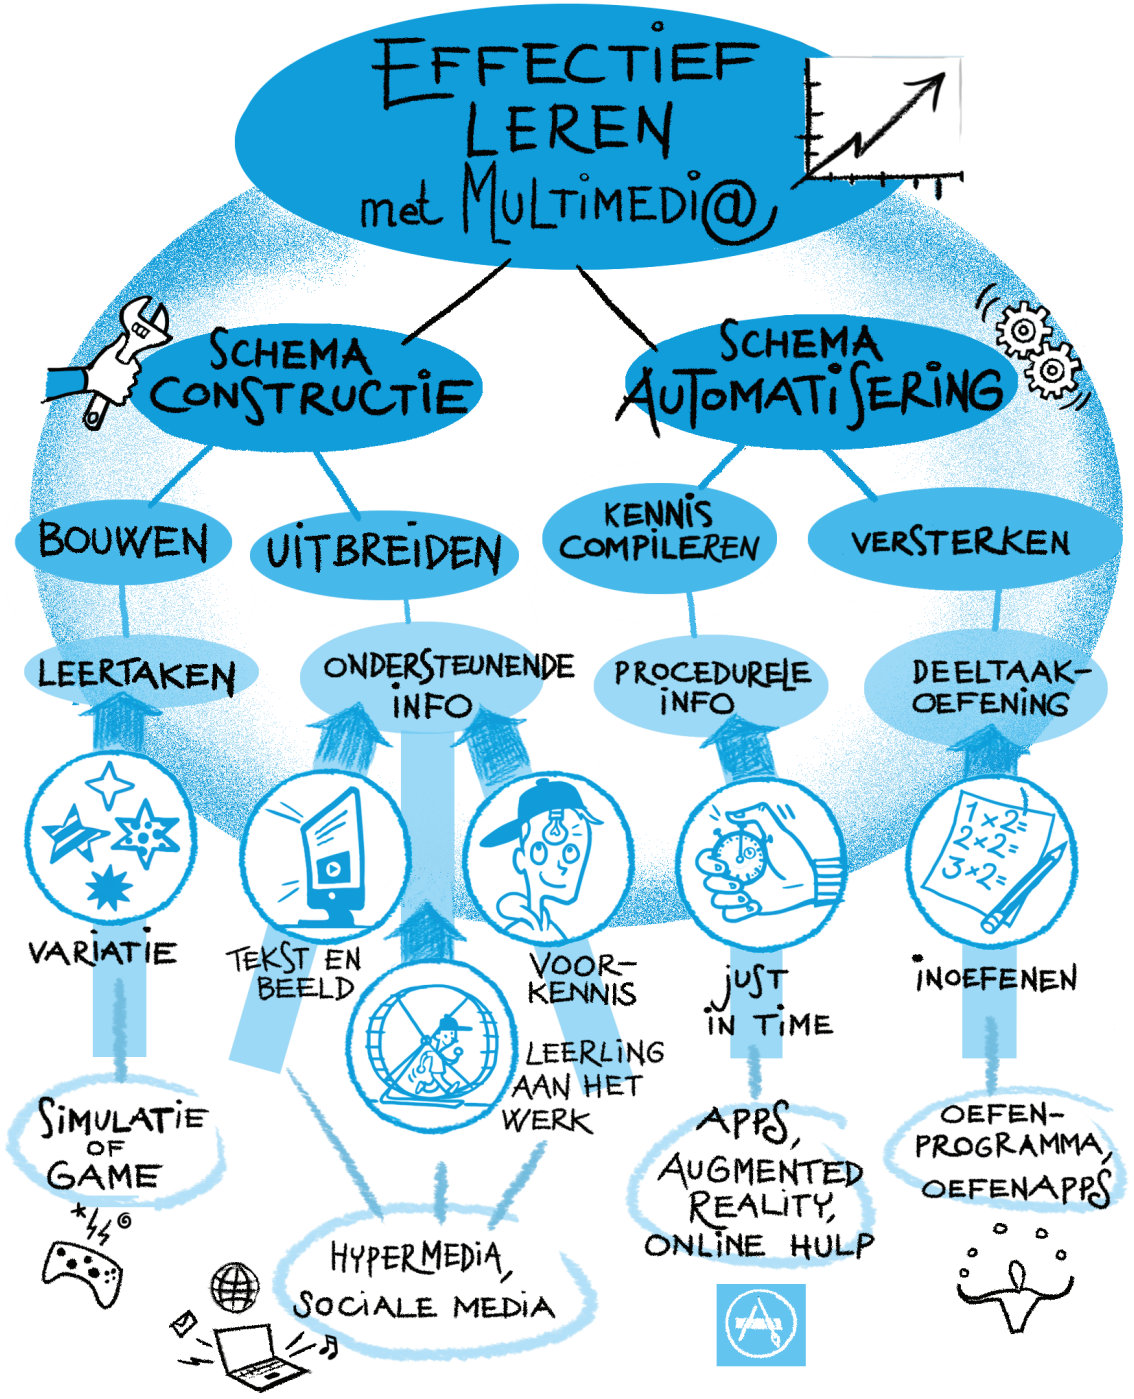 EFFECTIEF
LEREN
met MULTIMEDI@
SCHEMA
CONSTRUCTIE
SCHEMA
AUTOMATISERING
BOUWEN
UITBREIDEN
KENNIS
COMPILEREN
VERSTERKEN
LEERTAKEN
ONDERSTEUNENDE
INFO
PROCEDURELE
INFO
DEELTAAK-
OEFENING
1 x 2=
2 x 2=
3 x 2=
VARIATIE
TEKST EN
BEELD
VOOR-
KENNIS
LEERLING
AAN HET
WERK
JUST
IN TIME
INOEFENEN
SIMULATIE
OF
GAME
HYPERMEDIA,
SOCIALE MEDIA
APPS,
AUGMENTED
REALITY,
ONLINE HULP
OEFEN-
PROGRAMMA,
OEFENAPPS